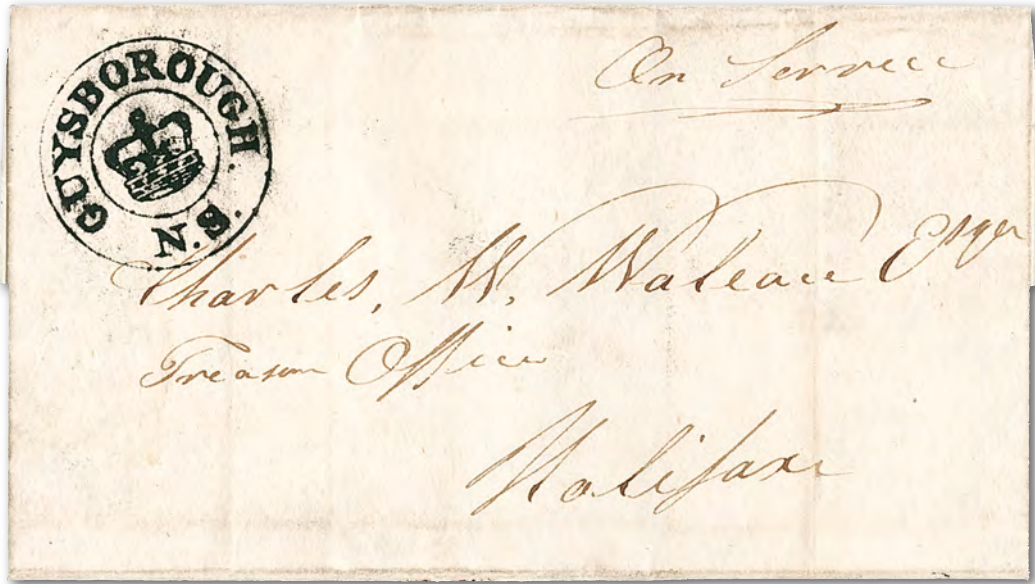 GUYSBOROUGH. N.S.
On Service
Charles, W, Waleace Esqr
Treasur Office
Halifax